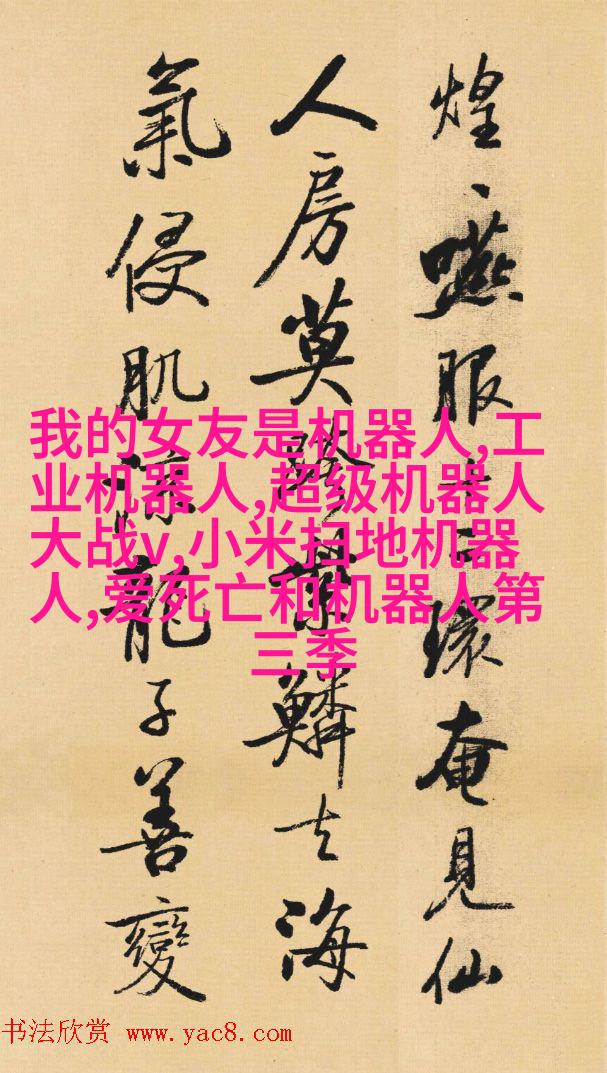 煌、嚥服十二環奄見仙
人房莫跨紫鱗去海
氣侵肌涼龍子善變
我的女友是机器人,工
业机器人,超级机器人
大战v,小米扫地机器
人,爱死亡和机器人第
三季
书法欣赏 www.yac8.com